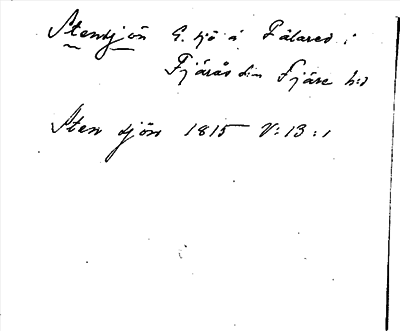 Stensjön G. sjö å Fälared i
Fjärås sn Fjäre hd
Sten sjön 1815 V:13:1